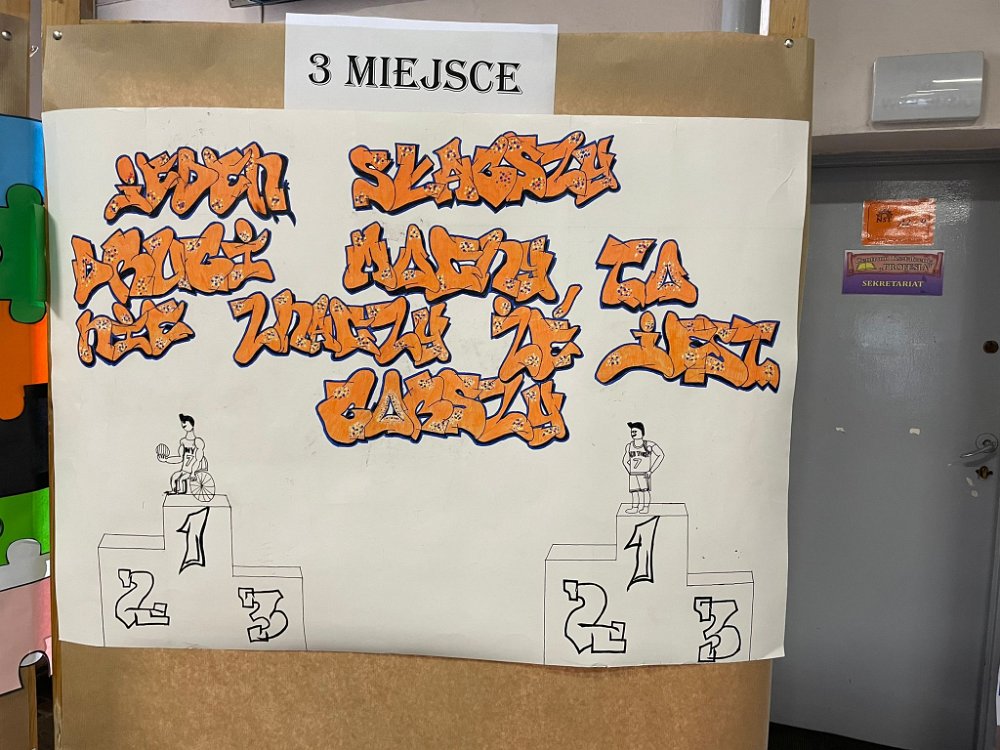 3 MIEJSCE
jEDEN SŁABSZY
DRUGI MOCNY TO
NIC ZNACZY ŹE jEST
GORSZY
NY
7
7
1
2
3
1
2
3
SEKRETARIAT